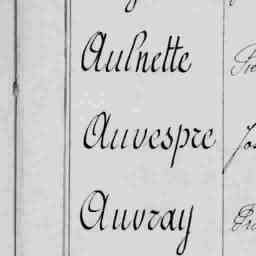 Aulnette
Auvespre
Auvray